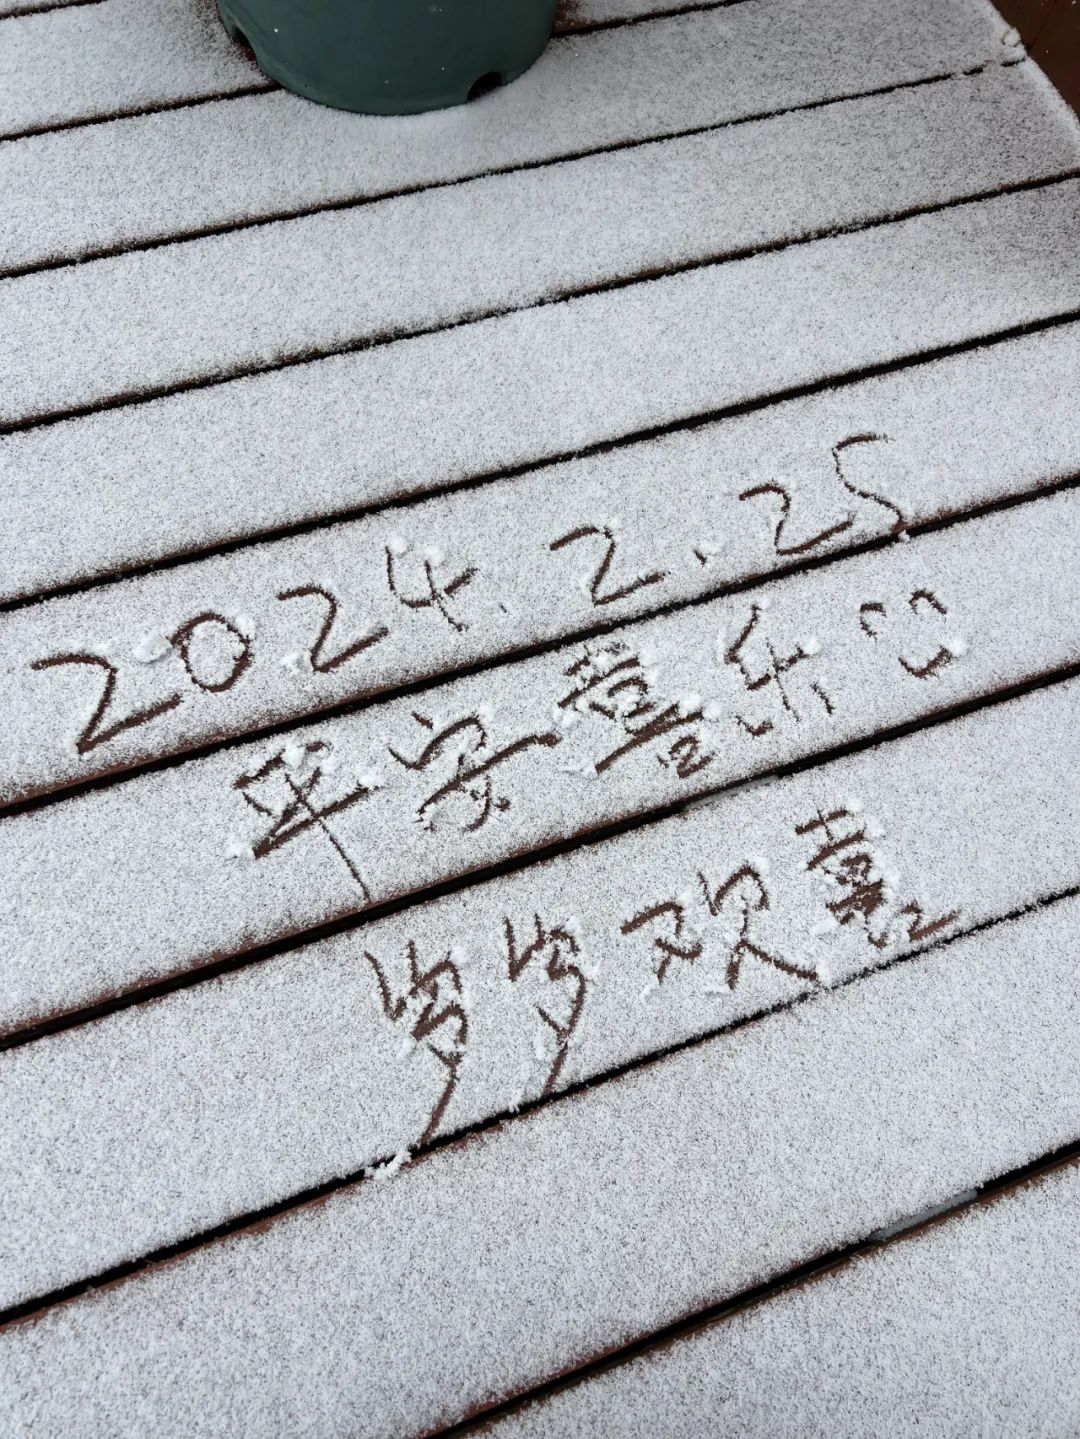 2024.2.25
平安喜乐
岁岁欢喜